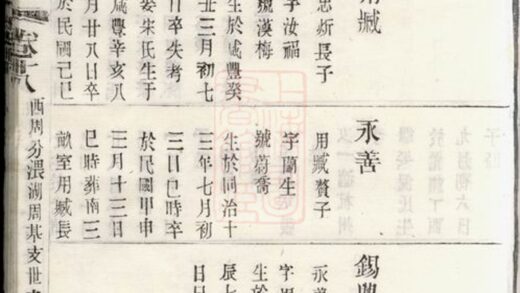 忠炘長子
字汝福
號漢梅
生於咸豐癸
丑三月初七
日卒失考
娶朱氏生于
咸豐辛亥八
月廿八日卒
於民國己巳
永善
用瑊贅子
字蘭生
號蔚喬
生於同治十
三年七月初
三日巳時卒
於民國甲申
三月十三日
巳時葬南三
畝室用瑊長
錫
永善
字
生於
辰七
日
卷八
西周分澴湖周基支世